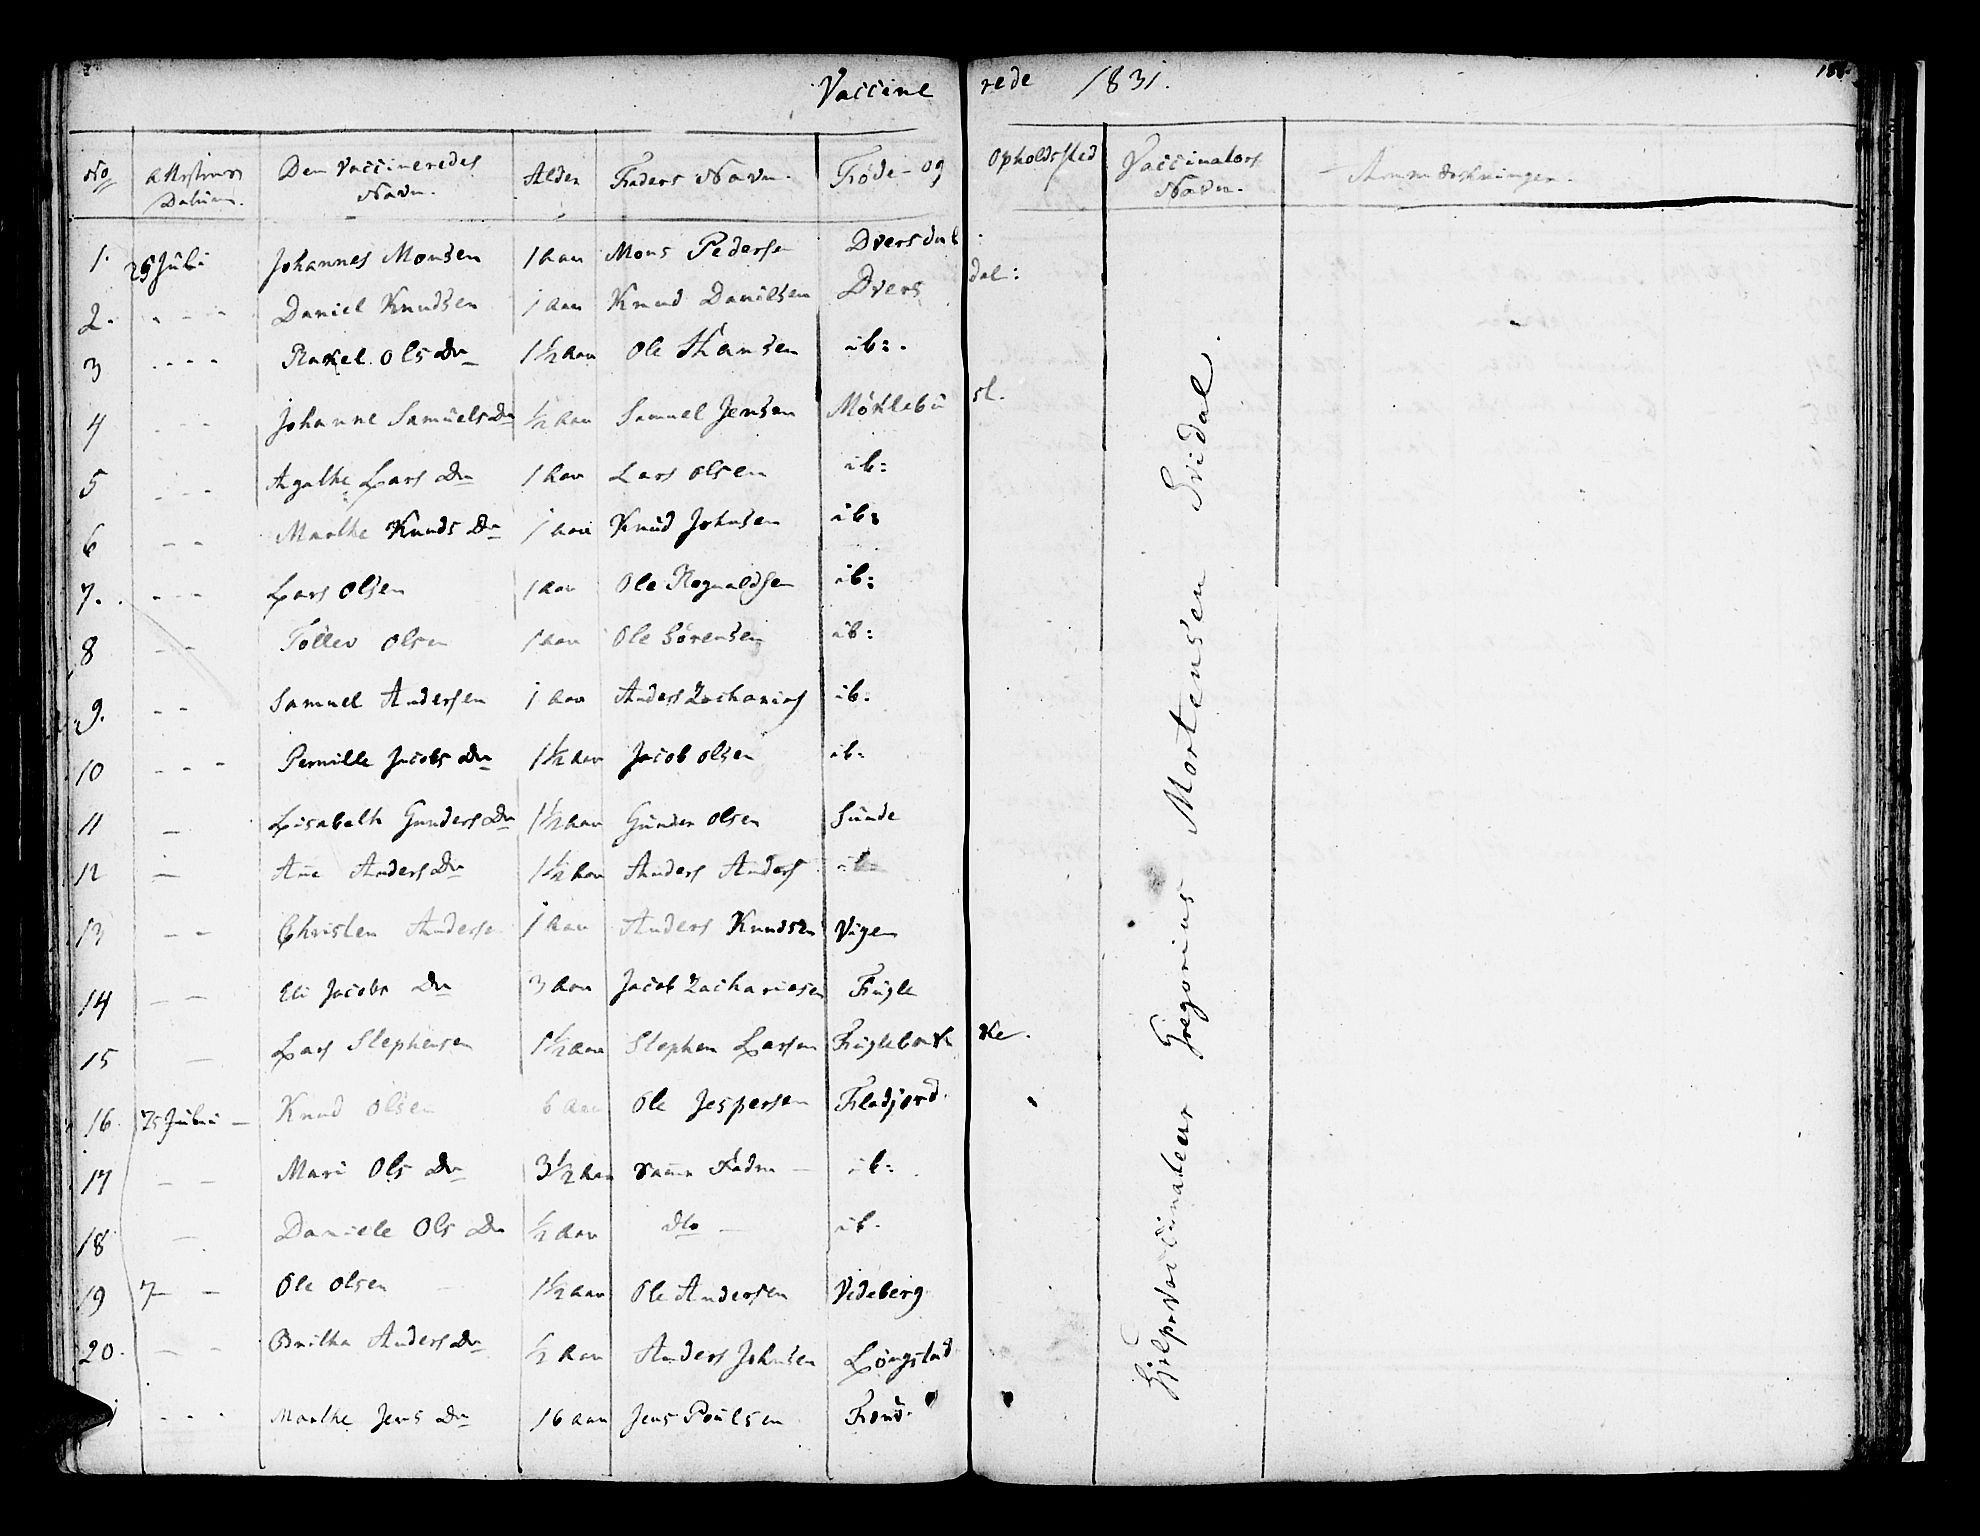 Vaccinerede 1831.
No Attestens Datum. Den Vaccineredes Navn. Alder Faders Navn. Føde- og Opholdssted Vaccinators Navn. Anmærkninger.
1. 25 Júli Johannes Monsen 1 Aar Mons Pedersen Dversdal:
2. - - - Daniel Knudsen 1 Aar Knud Danielsen Dversdal:
3 - - - Rakel Ols Dr 1 1/2 Aar Ole Hansen ib:
4 - - - Johanne Samuels Dr 1/2 Aar Samuel Jensen Møklebúst.
5 - - - Agathe Lars Dr 1 Aar Lars Olsen ib:
6 - - Marthe Knuds Dr 1 Aar Knúd Johnsen ib:
7. - - - Lars Olsen 1 Aar Ole Rognaldsen ib:
8 - - Tollev Olsen 1 Aar Ole Sørensen ib:
9. - - Samuel Andersen 1 Aar Anders Zacharias ib:
10 - - - Pernille Jacobs Dr 1 1/2 Aar Jacob Olsen ib:
11 - Lisabeth Gunders Dr 1 1/2 Aar Gúnder Olsen Súnde
12 - Ane Anders Dr 1 1/2 Aar Anders Anders ib:
13 - - Christen Anderse 1 Aar Anders Knudsen Vigen
14 - - Eli Jacobs Dr 3 Aar Jacob Zachariasen Fúgle
15 - Lars Stephensen 1 1/2 Aar Stephen Larsen
16. 25 Júli - Knud Olsen 6 Aar Ole Jespersen
17 - - Mari Ols Dr 3 1/2 Aar samme Fader - ib:
18 - Daniele Ols Dr 1/2 Aar dto - ib.
19 - - Ole Olsen 1 1/2 Aar Ole Andersen Vedeberg
20. - - Britha Anders Dr 1/2 Aar Anders Johnsen
- - - Marthe Jens Dr 16 Aar Jens Poúlsen
Hjelpevaccinateur Gregorius Mortensen Svidal.